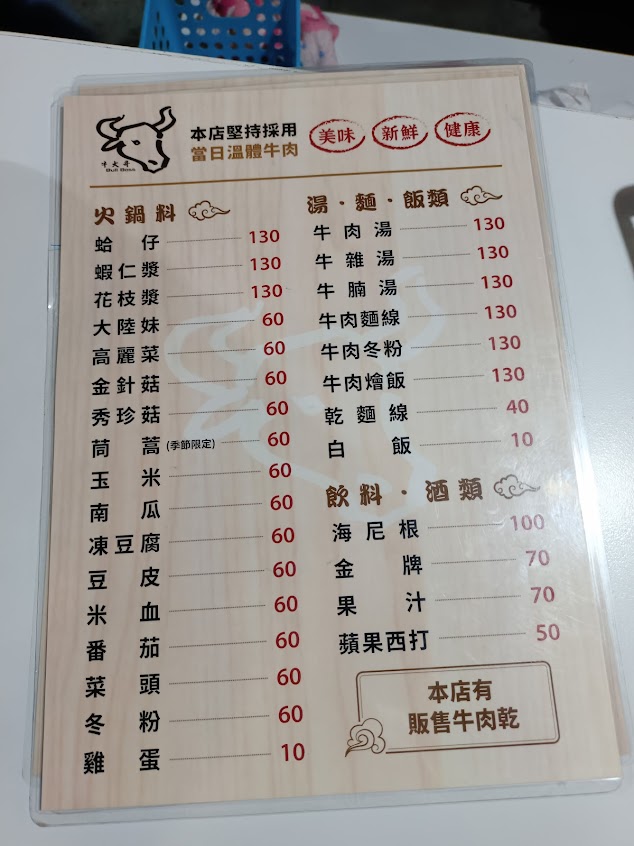 牛大哥
Bull Boss
本店堅持採用
當日溫體牛肉
美味 新鮮 健康
火鍋料
蛤仔 130
蝦仁漿 130
花枝漿 130
大陸妹 60
高麗菜 60
金針菇 60
秀珍菇 60
茼蒿(季節限定) 60
玉米 60
南瓜 60
凍豆腐 60
豆皮 60
米血 60
番茄 60
菜頭 60
冬粉 60
雞蛋 10
湯·麵·飯類
牛肉湯 130
牛雜湯 130
牛腩湯 130
牛肉麵線 130
牛肉冬粉 130
牛肉燴飯 130
乾麵線 40
白飯 10
飲料·酒類
海尼根 100
金牌 70
果汁 70
蘋果西打 50
本店有
販售牛肉乾